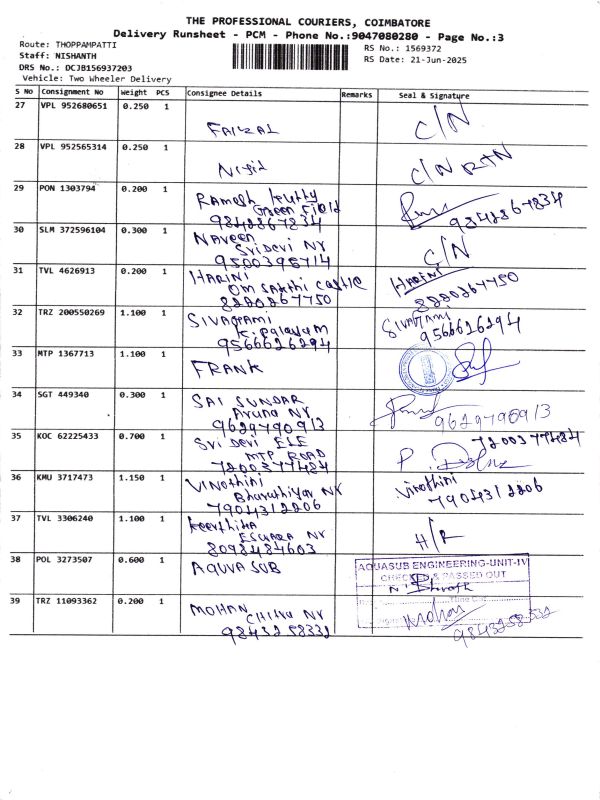 THE PROFESSIONAL COURIERS, COIMBATORE
Delivery Runsheet - PCM - Phone No.:9047080280 - Page No.:3
Route: THOPPAMPATTI
RS No.: 1569372
Staff: NISHANTH
RS Date: 21-Jun-2025
DRS No.: DCJB156937203
Vehicle: Two Wheeler Delivery
S No Consignment No Weight PCS Consignee Details Remarks Seal & Signature
27 VPL 952680651 0.250 1
FAIZAL C/N
28 VPL 952565314 0.250 1
Nijil C/N RTN
29 PON 1303794 0.200 1
RAMESh kutty
Green Field
9842867834 9842867834
30 SLM 372596104 0.300 1
NAVEEN C/N
Sri Devi Nr
9500395714
31 TVL 4626913 0.200 1
HARINI HARINI
OM SAKthi CastlE
8220267750 8220267750
32 TRZ 200550269 1.100 1
SIVAGAMI SIVAGAMI
K. Palayam
9566626294 9566626294
33 MTP 1367713 1.100 1
FRANK
34 SGT 449340 0.300 1
SAI SUNDAR
Aruna Nr
9629790913 9629790913
35 KOC 62225433 0.700 1
Sri Devi ELE
MTP ROAD
7200377484 7200377484
36 KMU 3717473 1.150 1
VINOthini Vinothini
Bharathiyar Nr
7904312206 7904312206
37 TVL 3306240 1.100 1
keerthika
ESWARA Nr H/R
8098484603
38 POL 3273507 0.600 1
AQUVA SUB
AQUASUB ENGINEERING-UNIT-IV
CHECKED & PASSED OUT
39 TRZ 11093362 0.200 1
MOHAN Mohan
Chitra Nr
9843258332 9843258332